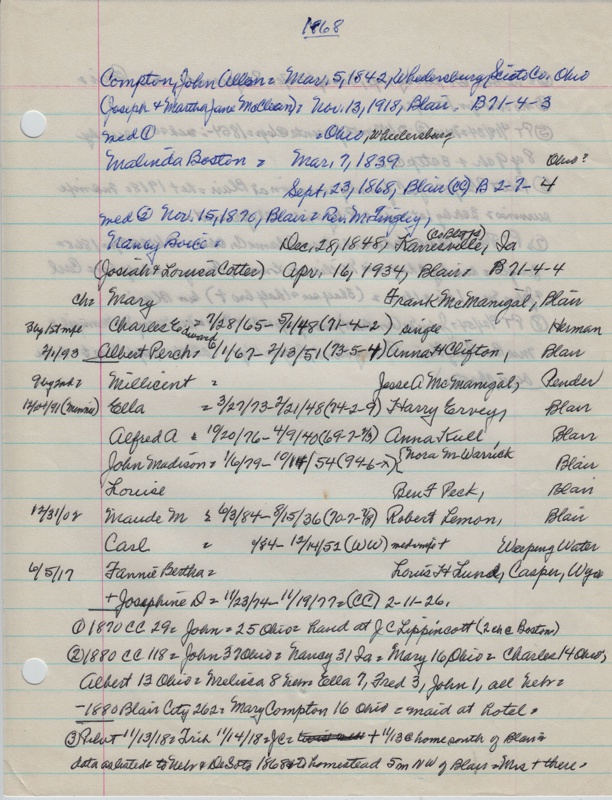 1868
Compton, John Allen = Mar. 5, 1842, Wheelersburg, Scioto Co. Ohio
(Joseph & Martha Jane McClean) = Nov. 13, 1918, Blair. B71-4-3
med ① = Ohio, Wheelersburg
Malinda Boston = Mar. 7, 1839 Ohio?
Sept. 23, 1868, Blair (CC) B 2-7-4
med ② Nov. 15, 1870, Blair = Rev. McTingley,
Nancy = Dec. 28, 1848, Kanesville, (Co Bluffs) Ia
(Josiah & Louisa Cotter) Apr. 16, 1934, Blair = B71-4-4
Ch = Mary Frank McManigal, Blair
3 by 1st mge Charles Edward = 7/28/65 - 5/1/48 (71-4-2) single Herman
2/1/93 Albert Perch = 1/1/67 - 2/13/51 (73-5-4) Anna H Clifton, Blair
9 by 2nd = Millicent = Jesse A McManigal, Pender
12/24/91 (Minnie) Ella = 3/27/73 - 2/21/48 (74-2-9) Harry Ervey, Blair
Alfred A = 10/20/76 - 4/9/40 (69-7-7/8) Anna Kull, Blair
John Madison = 1/6/79 - 10/14/54 (94-6-x) {Nora M Warrick Blair
Louise Ben F Peck, Blair
12/31/02 Maude M = 6/3/84 - 8/15/36 (70-7-7/8) Robert Lemon, Blair
Carl = /84 - 12/14/52 (WW) Weeping Water
6/5/17 Fannie Bertha = Louis H Lund, Casper, Wyo
+ Josephine D = 11/23/74 - 11/19/77 = (CC) 2-11-26.
① 1870 CC 29 = John = 25 Ohio = hand at J C Lippincott (2 ch c Boston)
② 1880 CC 118 = John 37 Ohio = Nancy 31 Ia = Mary 16 Ohio = Charles 14 Ohio,
Albert 13 Ohio = Melissa 8 Nebr = Ella 7, Fred 3, John 1, all Nebr =
- 1880 Blair City 262 = Mary Compton 16 Ohio = maid at hotel =
③ Pilot 11/13/18 = Trib 11/14/18 = JC = + 11/13 @ home south of Blair =
data as listed = to Nebr & DeSoto 1868 = to homestead 5 m NW of Blair = Mrs + there =